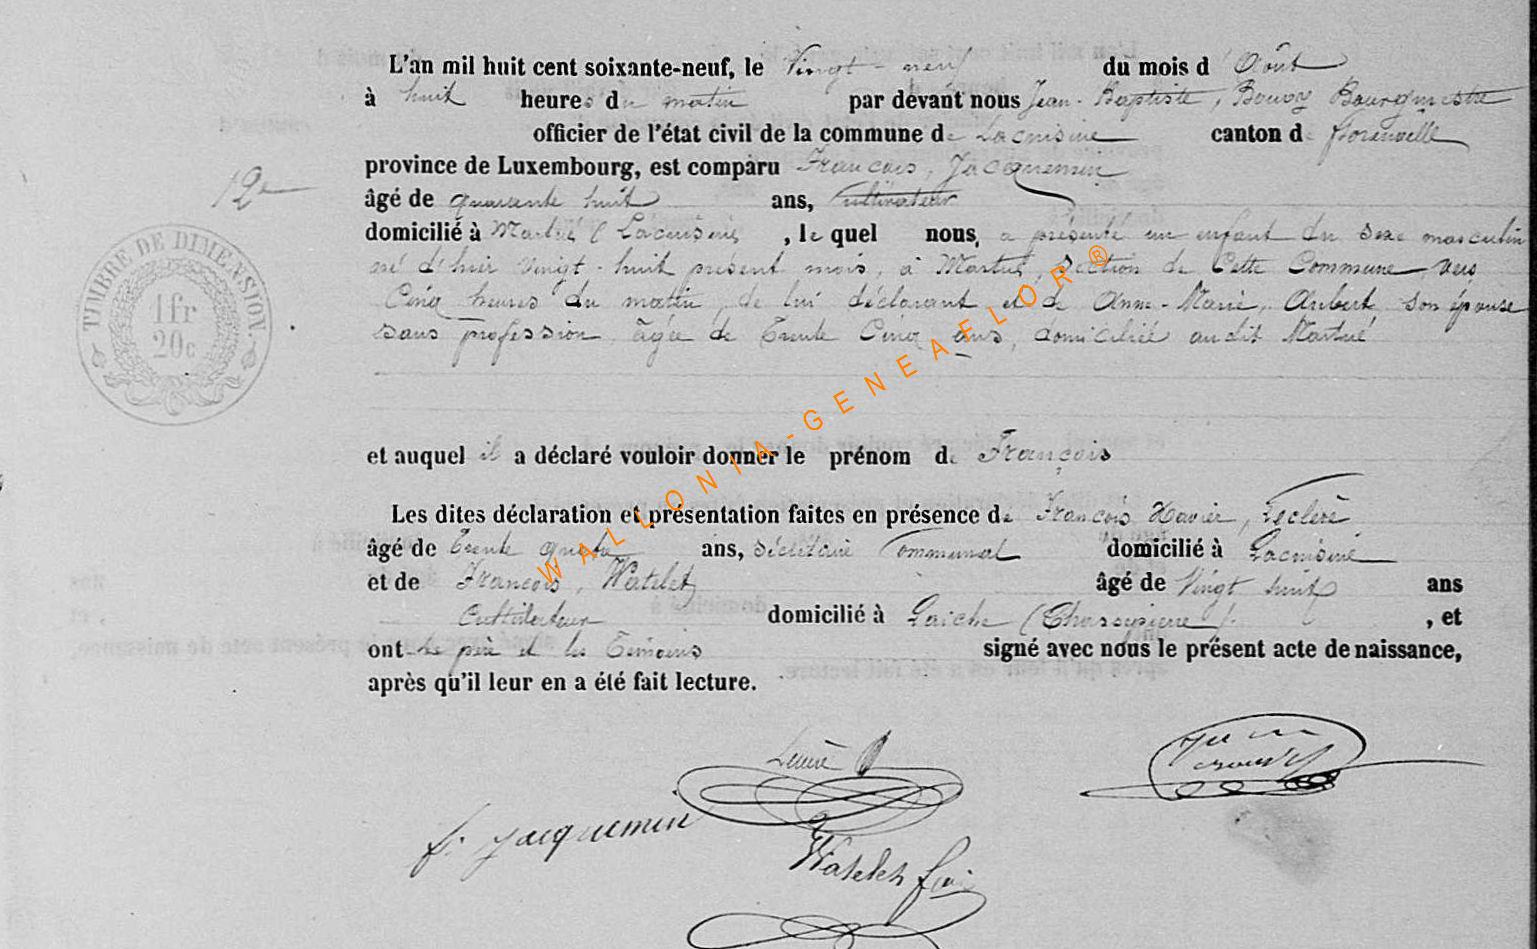 L'an mil huit cent soixante-neuf, le Vingt-neuf du mois d'Août
à huit heures du matin par devant nous Jean-Baptiste, Bouvy Bourgmestre
officier de l'état civil de la commune de Lacuisine canton de Florenville
province de Luxembourg, est comparu François, Jacquemin
12e
âgé de quarante huit ans, Cultivateur
domicilié à Martué (Lacuisine) , le quel nous, a présenté un enfant du sexe masculin
né d'hier vingt-huit présent mois, à Martué, section de Cette Commune vers
Cinq heures du matin, de lui déclarant et de Anne-Marie, Aubert, son épouse
sans profession âgée de Trente Cinq ans, domiciliée audit Martué
TIMBRE DE DIMENSION.
1 fr
20c
et auquel il a déclaré vouloir donner le prénom de François
Les dites déclaration et présentation faites en présence de François Xavier, Leclère
âgé de Trente quatre ans, sécrétaire Communal domicilié à Lacuisine
et de François, Watelet âgé de Vingt huit ans
Cultivateur domicilié à Laiche (Chassepierre) , et
ont le père et les Témoins signé avec nous le présent acte de naissance,
après qu'il leur en a été fait lecture.
f. jacquemin
Watelet
WALLONIA-GENEAFLOR®